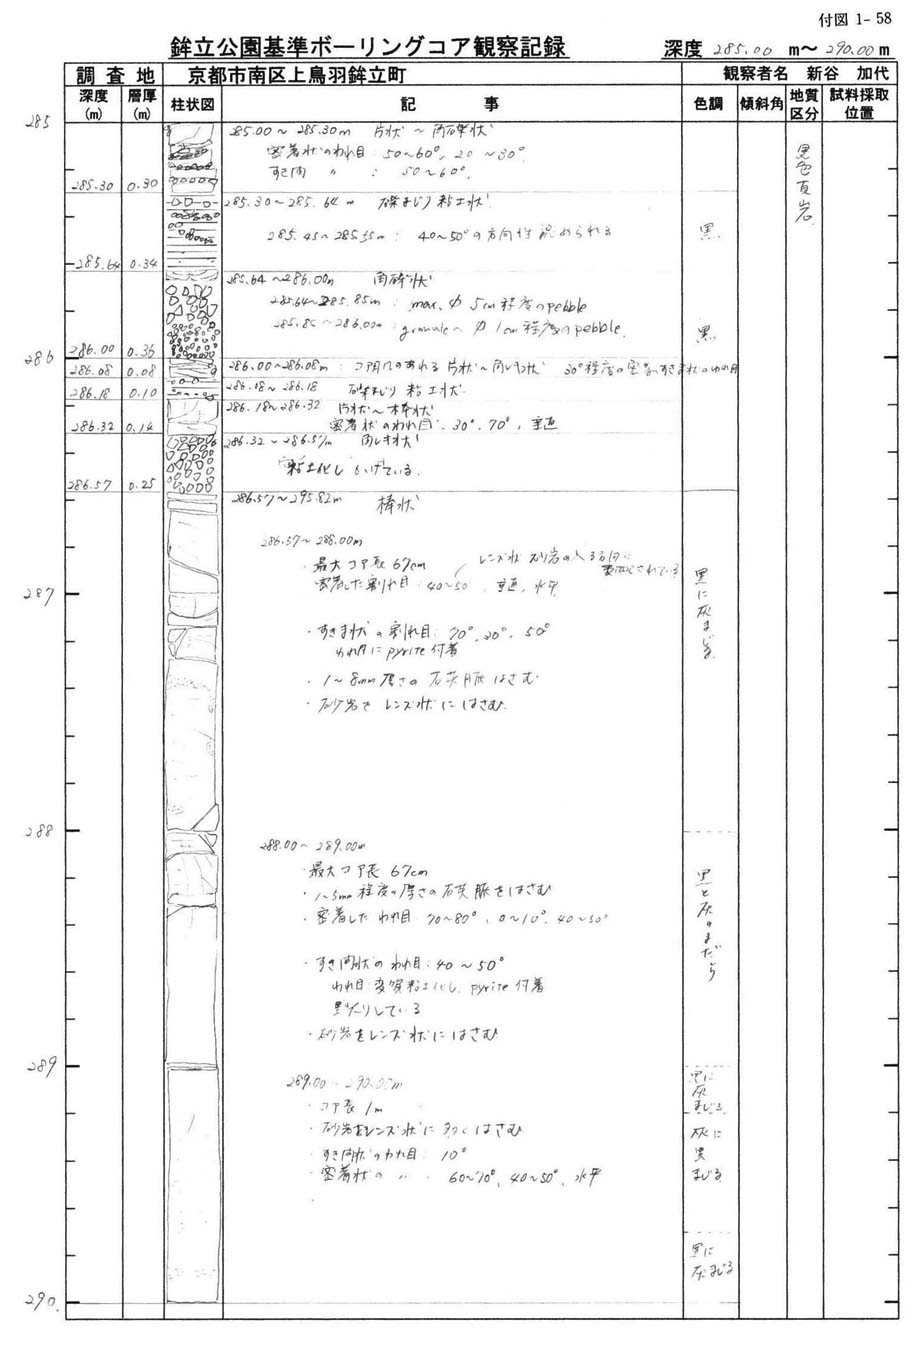 付図 1- 58
鉾立公園基準ボーリングコア観察記録 深度 285.00 m〜 290.00 m
調査地 京都市南区上鳥羽鉾立町 観察者名 新谷 加代
深度(m) 層厚(m) 柱状図 記事 色調 傾斜角 地質区分 試料採取位置
285
285.00〜285.30m 片状〜角礫状
密着状のわれ目:50〜60°, 20〜30°
すき間 〃 : 50〜60°
黒色頁岩
285.30 0.30
285.30〜285.64m 礫まじり粘土状
285.45〜285.55m: 40〜50°の方向性認められる
黒
285.64 0.34
285.64〜286.00m 角礫状
285.64〜285.85m: max. φ 5cm程度のpebble
285.85〜286.00m: granule〜φ 1cm程度のpebble
黒
286
286.00 0.36
286.00〜286.08m: 片状〜角レキ状 30°程度の密着、すきま状のわれ目
286.08 0.08
286.18〜286.18 礫まじり粘土状
286.18 0.10
286.18〜286.32 片状〜棒状
密着状のわれ目:30°, 70°, 垂直
286.32 0.14
286.32〜286.57m 角レキ状
286.57 0.25
286.57〜295.82m 棒状
286.57〜288.00m
・最大コア長 67cm
レンズ状砂岩の入る方向に
密着した割れ目:40〜50, 垂直, 水平
287
黒に灰まじる
・すきま状の割れ目:70°, 20°, 50°
われ目にpyrite付着
・1〜8mm厚さの石英脈はさむ
・砂岩をレンズ状にはさむ
288
288.00〜289.00m
・最大コア長 67cm
・1〜5mm程度の厚さの石英脈をはさむ
・密着したわれ目 70〜80°, 0〜10°, 40〜50°
黒と灰のまだら
・すき間状のわれ目:40〜50°
われ目:変質粘土化し, pyrite付着
している
・砂岩をレンズ状にはさむ
289
289.00〜290.00m
・コア長 1m
・砂岩をレンズ状に多くはさむ
・すき間状のわれ目:10°
・密着状の 〃 60〜70°, 40〜50°, 水平
黒に灰まじる
灰に黒まじる
黒に灰まじる
290